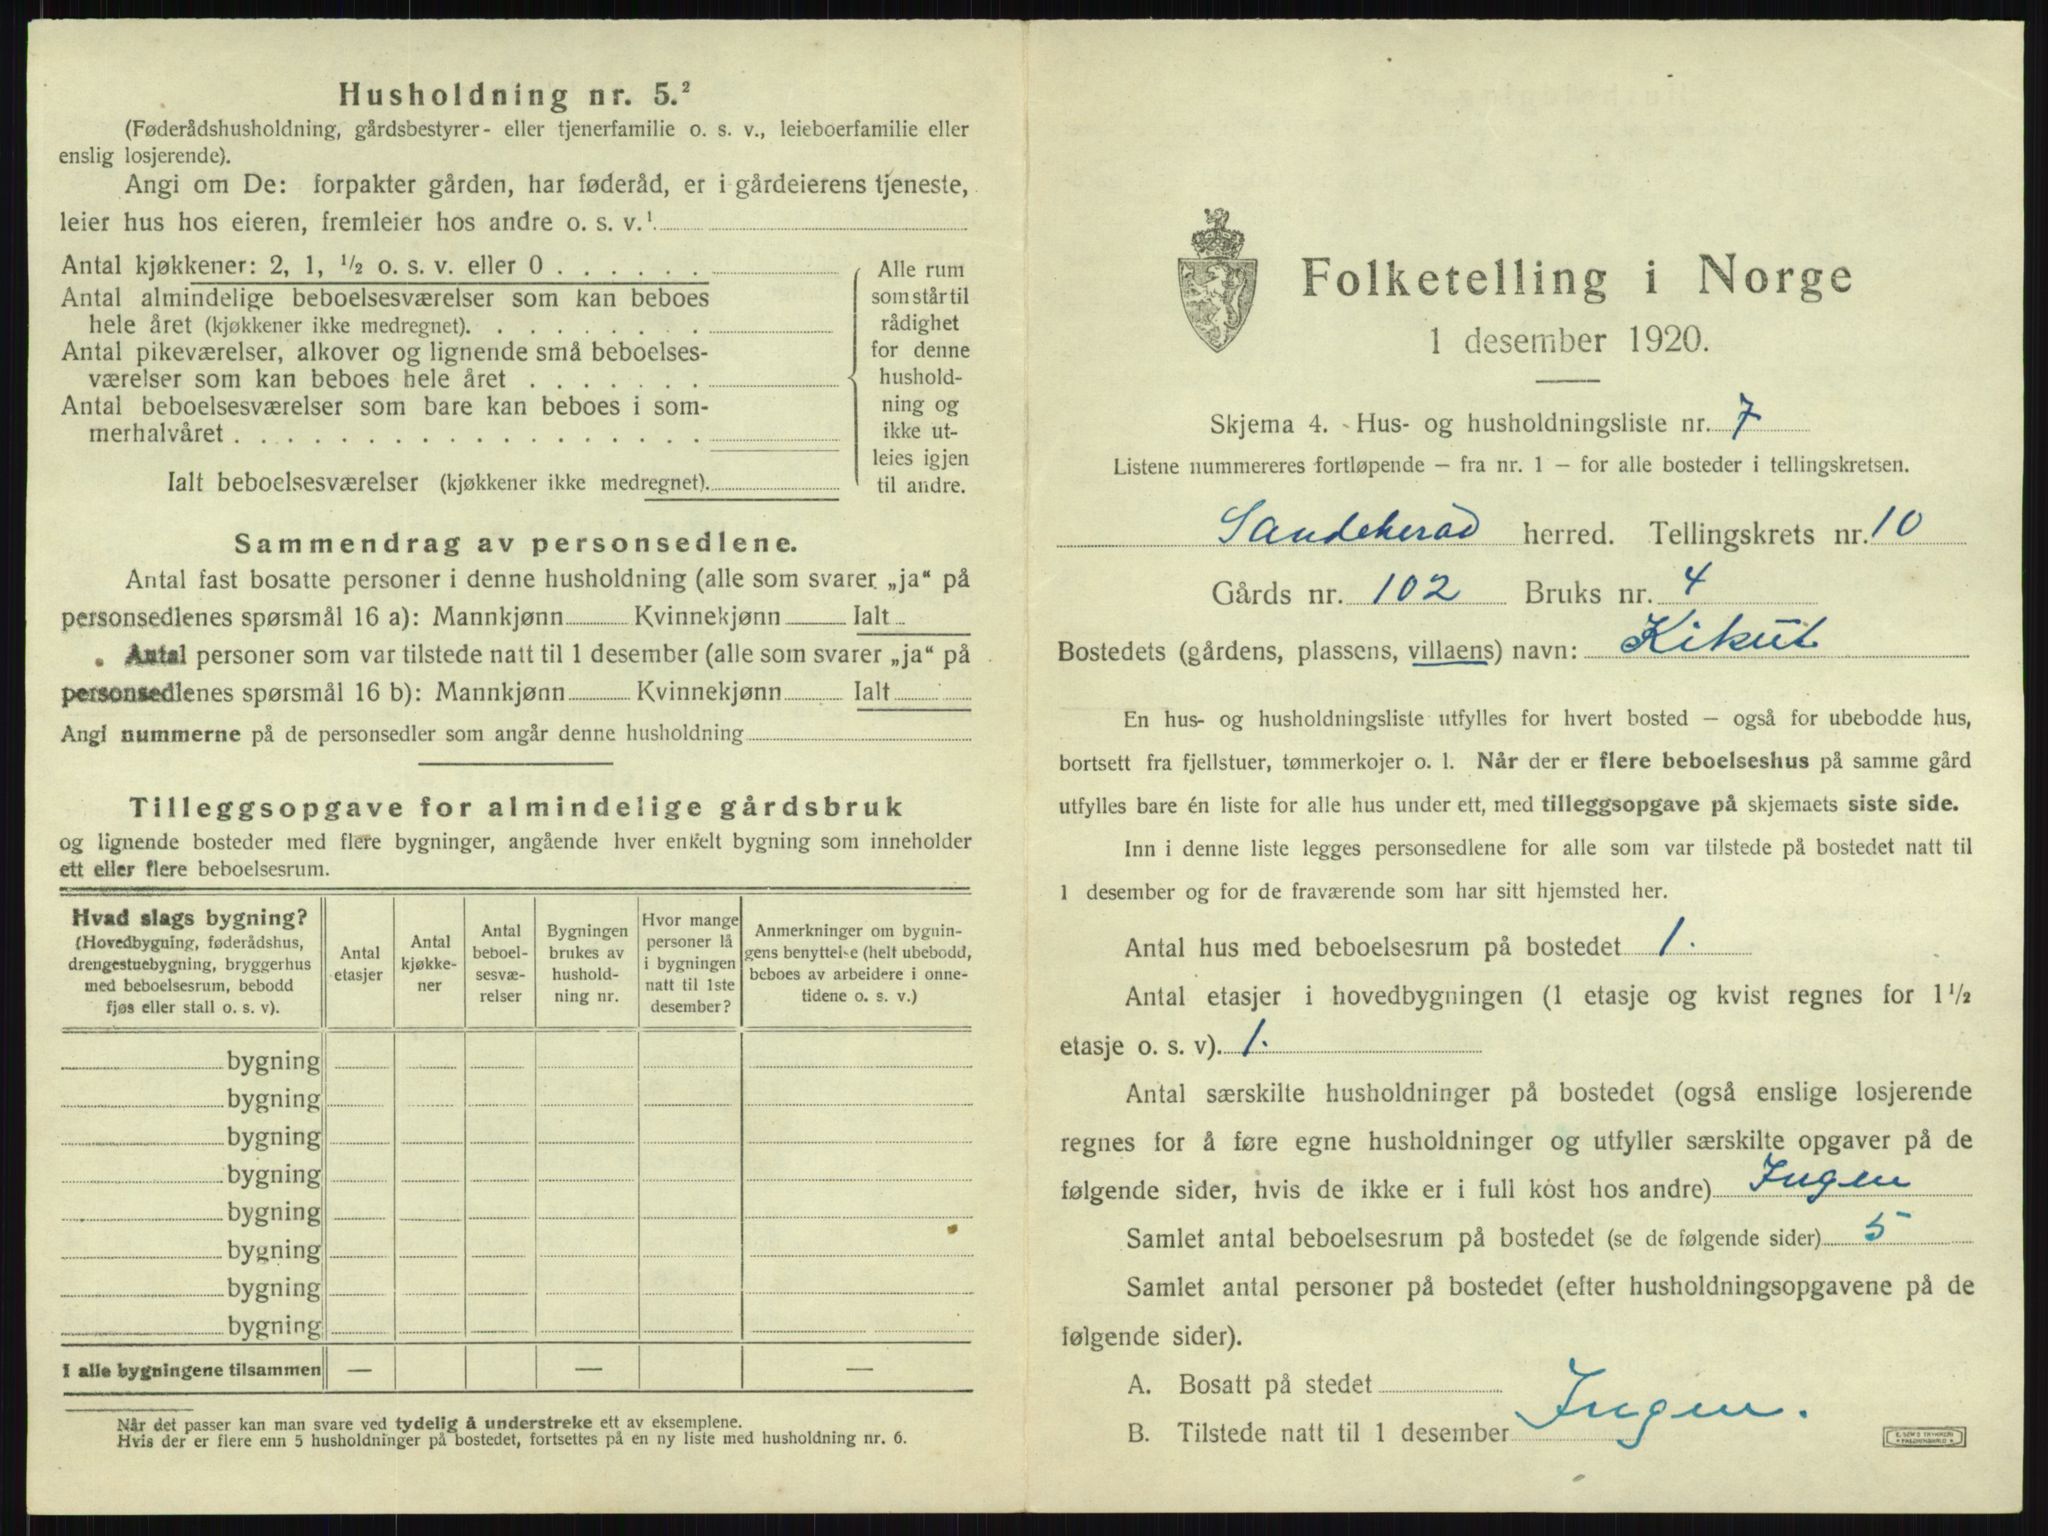 Husholdning nr. 5.²
(Føderådshusholdning, gårdsbestyrer- eller tjenerfamilie o. s. v., leieboerfamilie eller
enslig losjerende).
Angi om De: forpakter gården, har føderåd, er i gårdeierens tjeneste,
leier hus hos eieren, fremleier hos andre o. s. v.¹
Antal kjøkkener: 2, 1, ½ o. s. v. eller 0 . . . . . .
Antal almindelige beboelsesværelser som kan beboes
hele året (kjøkkener ikke medregnet). . . . . . . . .
Antal pikeværelser, alkover og lignende små beboelses-
værelser som kan beboes hele året . . . . . . .
Antal beboelsesværelser som bare kan beboes i som-
merhalvåret . . . . . . . . . . . . . . . . . .
Ialt beboelsesværelser (kjøkkener ikke medregnet).
Alle rum
som står til
rådighet
for denne
hushold-
ning og
ikke ut-
leies igjen
til andre.
Sammendrag av personsedlene.
Antal fast bosatte personer i denne husholdning (alle som svarer „ja“ på
personsedlenes spørsmål 16 a): Mannkjønn Kvinnekjønn Ialt
Antal personer som var tilstede natt til 1 desember (alle som svarer „ja“ på
personsedlenes spørsmål 16 b): Mannkjønn Kvinnekjønn Ialt
Angi nummerne på de personsedler som angår denne husholdning
Tilleggsopgave for almindelige gårdsbruk
og lignende bosteder med flere bygninger, angående hver enkelt bygning som inneholder
ett eller flere beboelsesrum.
Hvad slags bygning?
(Hovedbygning, føderådshus,
drengestuebygning, bryggerhus
med beboelsesrum, bebodd
fjøs eller stall o. s. v).
Antal
etasjer
Antal
kjøkke-
ner
Antal
beboel-
sesvæ-
relser
Bygningen
brukes av
hushold-
ning nr.
Hvor mange
personer lå
i bygningen
natt til 1ste
desember?
Anmerkninger om bygnin-
gens benyttelse (helt ubebodd,
beboes av arbeidere i onne-
tidene o. s. v.)
bygning
bygning
bygning
bygning
bygning
bygning
bygning
bygning
I alle bygningene tilsammen — — —
Når det passer kan man svare ved tydelig å understreke ett av eksemplene.
Hvis der er flere enn 5 husholdninger på bostedet, fortsettes på en ny liste med husholdning nr. 6.
Folketelling i Norge
1 desember 1920.
Skjema 4. Hus- og husholdningsliste nr. 7
Listene nummereres fortløpende – fra nr. 1 – for alle bosteder i tellingskretsen.
Sandeherad herred. Tellingskrets nr. 10
Gårds nr. 102 Bruks nr. 4
Bostedets (gårdens, plassens, villaens) navn: Kikut
En hus- og husholdningsliste utfylles for hvert bosted – også for ubebodde hus,
bortsett fra fjellstuer, tømmerkojer o. l. Når der er flere beboelseshus på samme gård
utfylles bare én liste for alle hus under ett, med tilleggsopgave på skjemaets siste side.
Inn i denne liste legges personsedlene for alle som var tilstede på bostedet natt til
1 desember og for de fraværende som har sitt hjemsted her.
Antal hus med beboelsesrum på bostedet 1.
Antal etasjer i hovedbygningen (1 etasje og kvist regnes for 1½
etasje o. s. v). 1.
Antal særskilte husholdninger på bostedet (også enslige losjerende
regnes for å føre egne husholdninger og utfyller særskilte opgaver på de
følgende sider, hvis de ikke er i full kost hos andre) Ingen
Samlet antal beboelsesrum på bostedet (se de følgende sider) 5
Samlet antal personer på bostedet (efter husholdningsopgavene på de
følgende sider).
A. Bosatt på stedet
B. Tilstede natt til 1 desember Ingen.